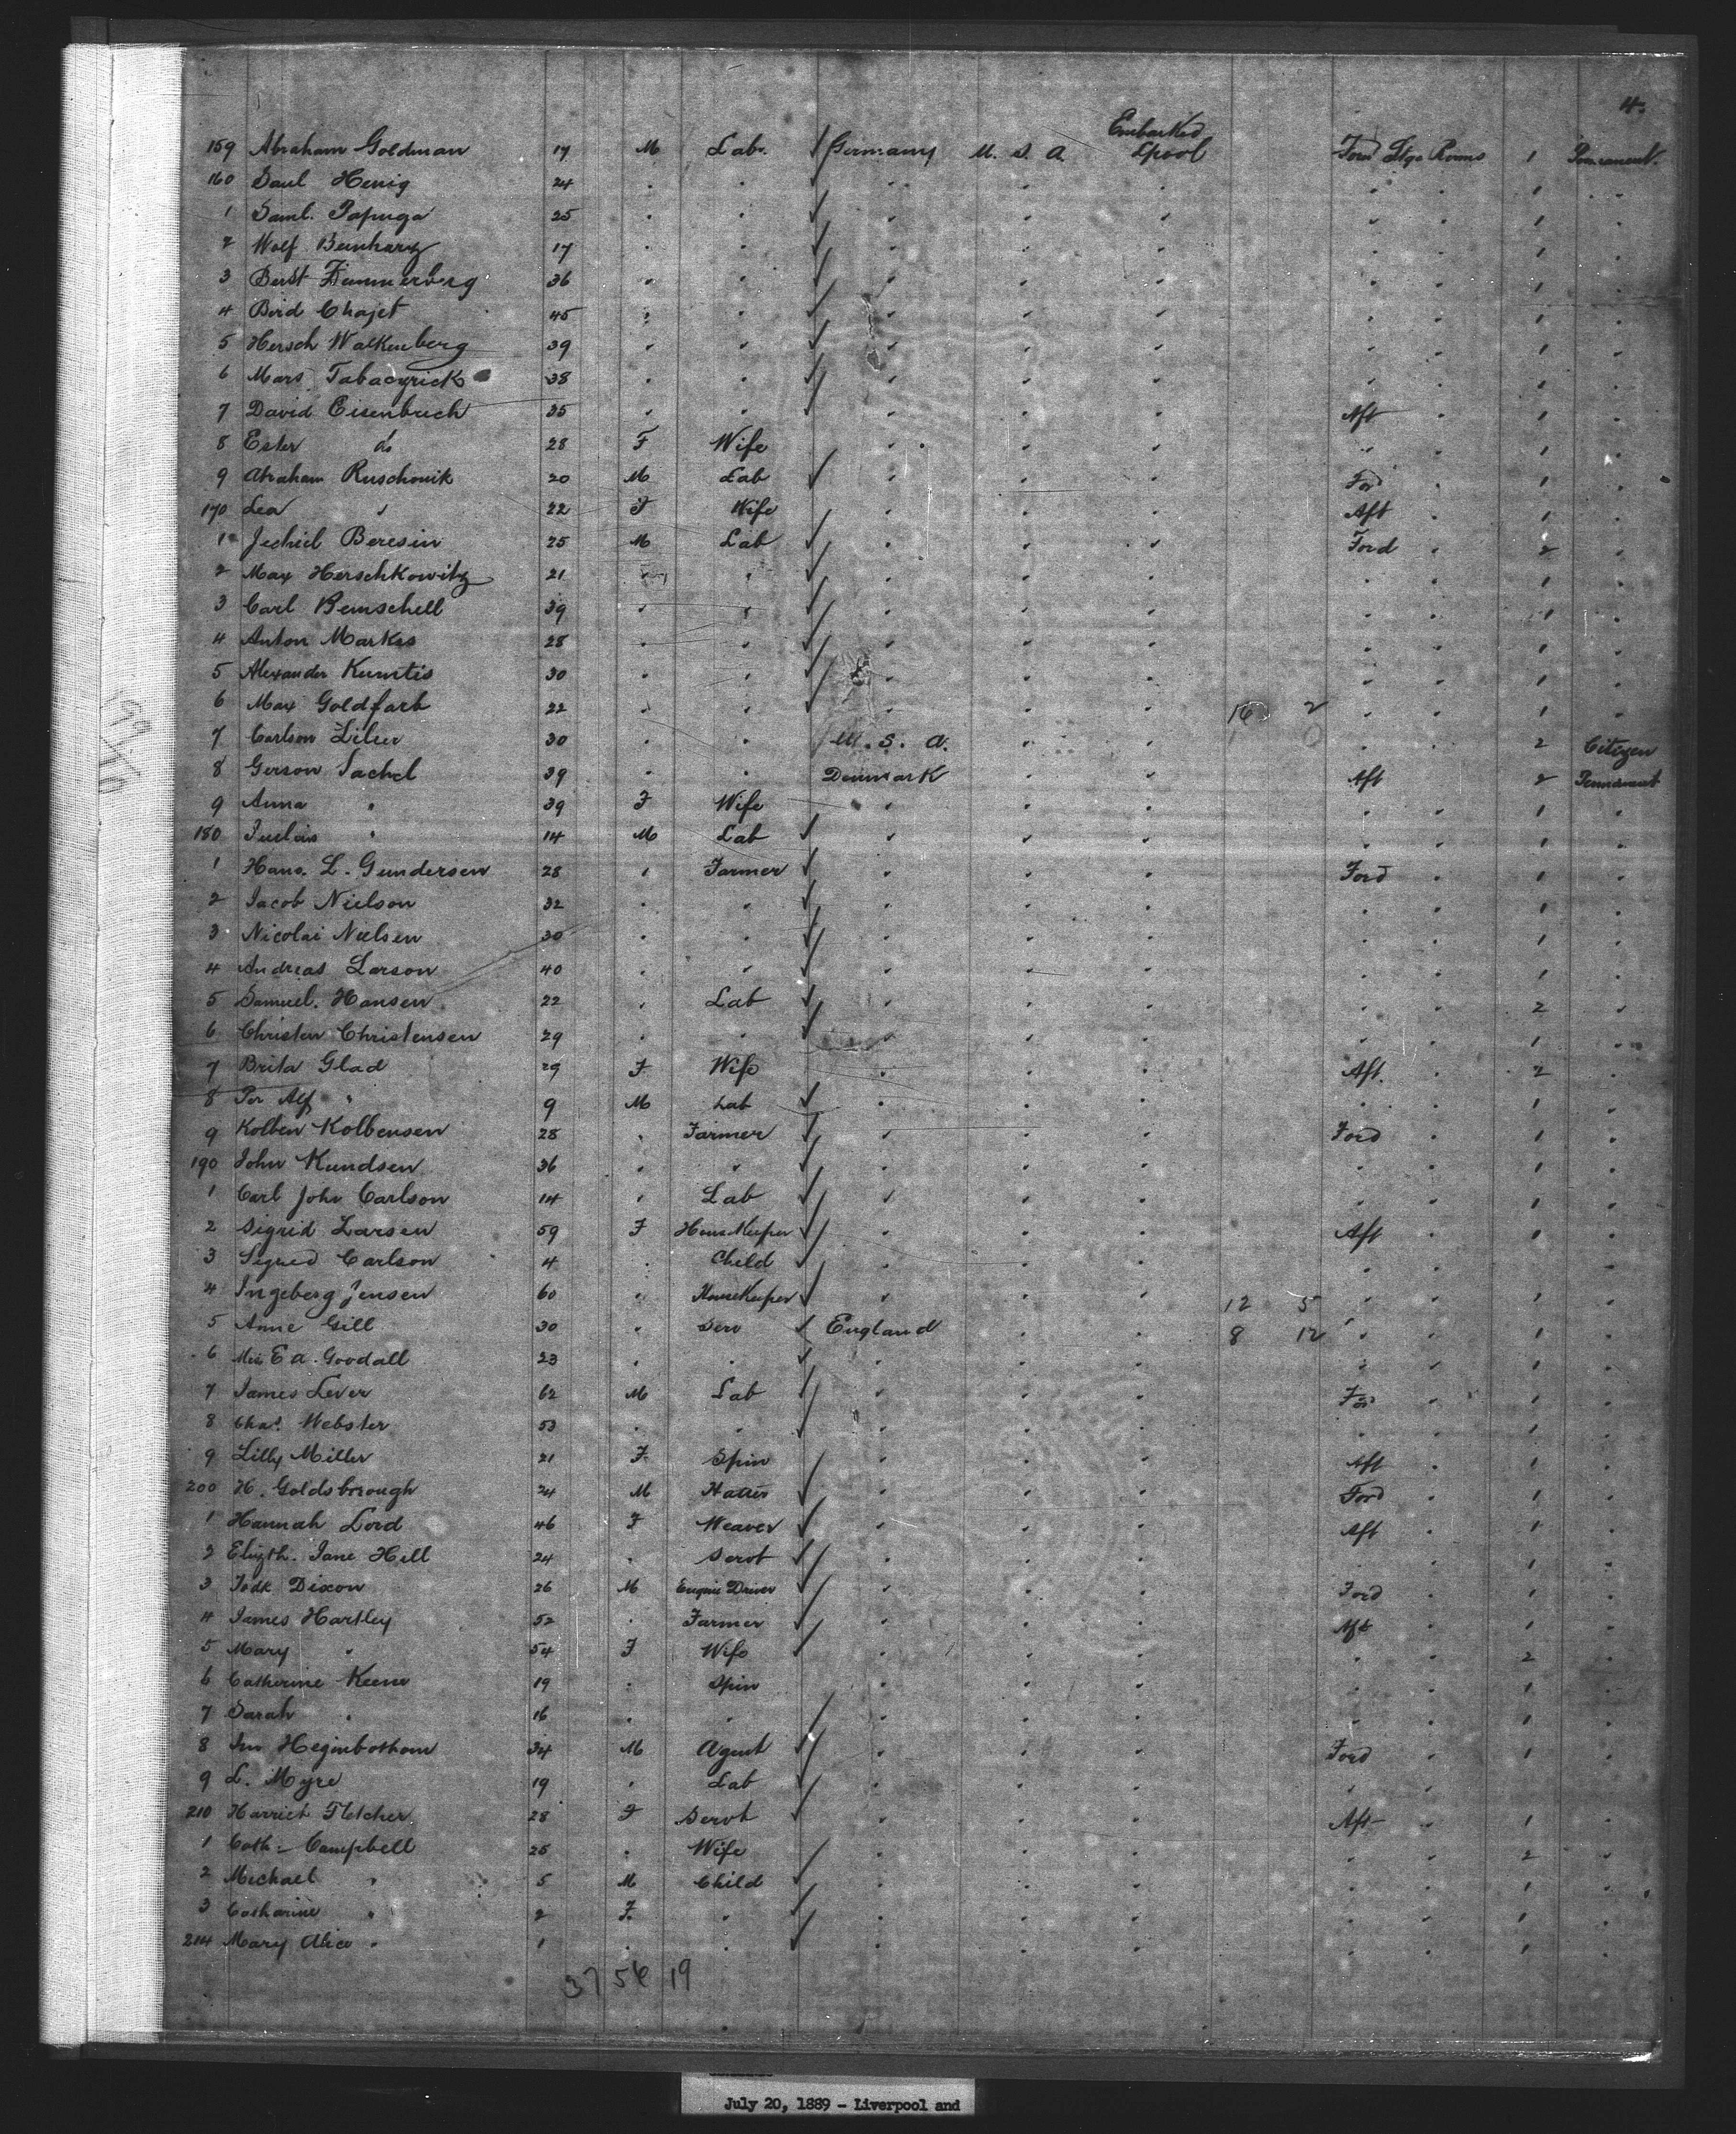 4.
Embarked
159 Abraham Goldman 17 M Labr. Germany U. S. A. Lpool Ford Stge Rooms 1 Permanent.
160 Saul Henig 24 " " " " " " 1 "
1 Saml. Papuga 25 " " " " " " " 1 "
2 Wolf 17 " " " " " " " 1 "
3 36 " " " " " " " 1 "
4 Berd Chajet 45 " " " " " " " 1 "
5 Hersch Walkenberg 39 " " " " " " " 1 "
6 Mars 38 " " " " " " " 1 "
7 David Eisenbruch 35 " " " " " Aft " 1 "
8 Ester do 28 F Wife " " " " " 1 "
9 Abraham Ruschonik 20 M Lab " " " For " 1 "
170 Lea " 22 F Wife " " " Aft " 1 "
1 Jechiel Beresin 25 M Lab " " " Ford " 2 "
2 Max Herschkowitz 21 " " " " " " " 1 "
3 Carl 39 " " " " " " " 1 "
4 Anton Markss 28 " " " " " " " 1 "
5 Alexander Kurntis 30 " " " " " " " 1 "
6 Max Goldfarb 22 " " " " " 16 2 " " 1 "
7 Carlson 30 " " U. S. A. " " " " 2 Citizen
8 Gerson Sachel 39 " " Denmark " " Aft " 2 Permanent
9 Anna " 39 F Wife " " " " " 1 "
180 " 14 M Lab " " " " " 1 "
1 Hans. L. Gundersen 28 " Farmer " " " Ford " 1 "
2 Jacob Nielson 32 " " " " " " " 1 "
3 Nicolai Nielsen 30 " " " " " " " 1 "
4 Andreas Larson 40 " " " " " " " 1 "
5 Samuel. Hansen 22 " Lab " " " " " 2 "
6 Christen Christensen 29 " " " " " " " 1 "
7 Brita Glad 29 F Wife " " " Aft. " 2 "
8 Per Alf " 9 M Lab " " " " " 1 "
9 Kolben Kolbensen 28 " Farmer " " " Ford " 1 "
190 John Kundsen 36 " " " " " " " 1 "
1 Carl John Carlson 14 " Lab " " " " " 1 "
2 Sigrid Larsen 59 F HouseKeeper " " " Aft " 1 "
3 Sigrid Carlson 4 " Child " " " " " 1 "
4 Ingeberg Jensen 60 " HouseKeeper " " " 12 5 " " 1 "
5 Anne Gill 30 " Serv England " " 8 12 " " 1 "
6 E A. Goodall 23 " " " " " " " 1 "
7 James Lever 62 M Lab " " " For " 1 "
8 Chas. Webster 53 " " " " " " " 1 "
9 Lilly Miller 21 F. Spin " " " Aft " 1 "
200 H. Goldsbrough 24 M Hatter " " " Ford " 1 "
1 Hannah Lord 46 F Weaver " " " Aft " 1 "
2 Elizth. Jane Hill 24 " Servt " " " " " 1 "
3 Fredk Dixon 26 M Engine Driver " " " Ford " 1 "
4 James Hartley 52 " Farmer " " " Aft " 1 "
5 Mary " 54 F Wife " " " " " 2 "
6 Catherine Keene 19 " Spin " " " " " 1 "
7 Sarah " 16 " " " " " " " 1 "
8 Jno Heginbothom 34 M Agent " " " Ford " 1 "
9 L. Myre 19 " Lab " " " " "
210 Harriet Fletcher 28 F Servt " " " Aft " 1 "
1 Cath: Campbell 25 " Wife " " " " " 2 "
2 Michael " 5 M Child " " " " " 1 "
3 Catharine " 2 F. " " " " " " 1 "
214 Mary Alice " 1 " " " " " " " 1 "
37 56 19
July 20, 1889 - Liverpool and